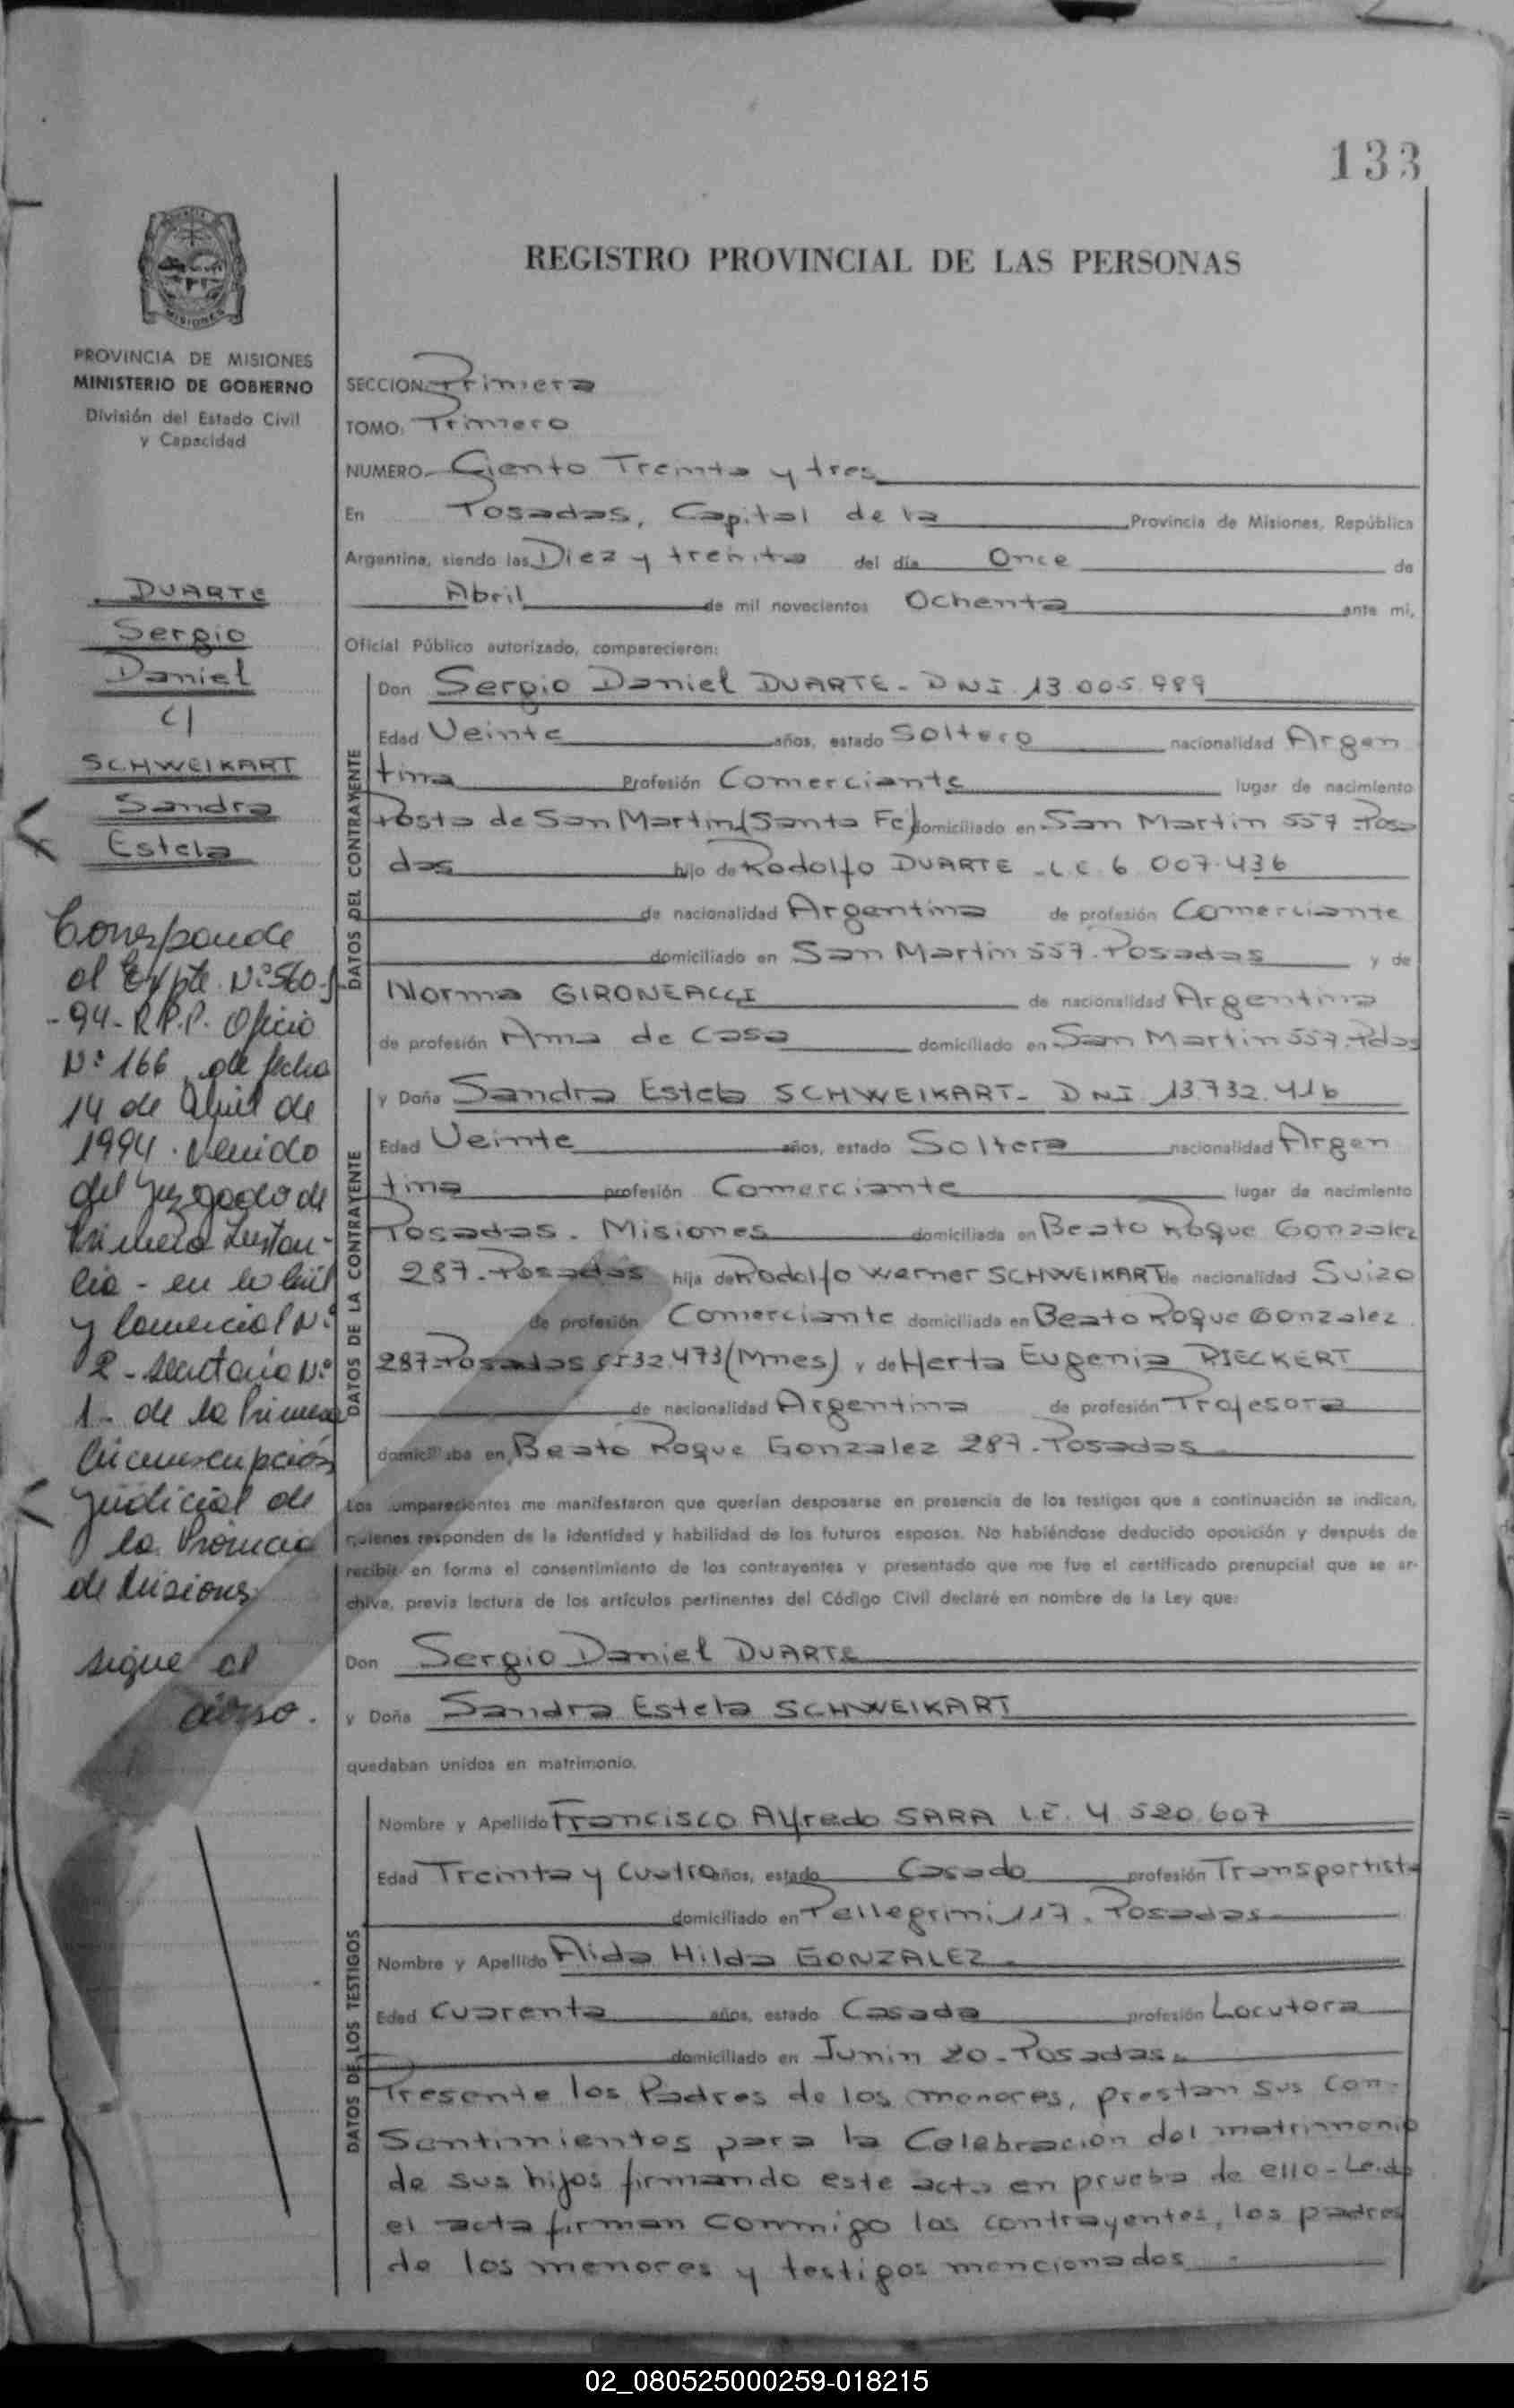 133
REGISTRO PROVINCIAL DE LAS PERSONAS
MISIONES
PROVINCIA DE MISIONES
MINISTERIO DE GOBIERNO
División del Estado Civil
y Capacidad
DUARTE
Sergio
Daniel
c/
SCHWEIKART
Sandra
Estela
Corresponde
al Expte. Nº 560-
-94- R.P.P. Oficio
Nº 166 de fecha
14 de Abril de
1994. venido
del Juzgado de
Primera Instan-
cia - en lo Civil
y Comercial Nº
2 - Secretaria Nº
1- de la Primera
Circunscripción
Judicial de
la Provincia
de Misiones
sigue al
dorso.
SECCION Primera
TOMO: Primero
NUMERO Ciento Treinta y tres
En Posadas, Capital de la Provincia de Misiones, República
Argentina, siendo las Diez y treinta del día Once de
Abril de mil novecientos Ochenta ante mi,
Oficial Público autorizado, comparecieron:
DATOS DEL CONTRAYENTE
Don Sergio Daniel DUARTE - DNI 13.005.989
Edad Veinte años, estado Soltero nacionalidad Argen
tina Profesión Comerciante lugar de nacimiento
Posta de San Martin (Santa Fe) domiciliado en San Martin 557 - Posa
das hijo de Rodolfo DUARTE - L.E. 6.007.436
de nacionalidad Argentina de profesión Comerciante
domiciliado en San Martin 557. Posadas y de
Norma de nacionalidad Argentina
de profesión Ama de Casa domiciliado en San Martin 557. Pdas
DATOS DE LA CONTRAYENTE
y Doña Sandra Estela SCHWEIKART - DNI 13.732.416
Edad Veinte años, estado Soltera nacionalidad Argen
tina profesión Comerciante lugar de nacimiento
Posadas. Misiones domiciliada en Beato Roque Gonzalez
287. Posadas hija de Rodolfo Werner SCHWEIKART de nacionalidad Suizo
de profesión Comerciante domiciliada en Beato Roque Gonzalez
287 - Posadas 32.473 (Mnes) y de Herta Eugenia RIECKERT
de nacionalidad Argentina de profesión Profesora
domiciliaba en Beato Roque Gonzalez 287 - Posadas
Los comparecientes me manifestaron que querían desposarse en presencia de los testigos que a continuación se indican,
quienes responden de la identidad y habilidad de los futuros esposos. No habiéndose deducido oposición y después de
recibir en forma el consentimiento de los contrayentes y presentado que me fue el certificado prenupcial que se ar-
chiva, previa lectura de los artículos pertinentes del Código Civil declaré en nombre de la Ley que:
Don Sergio Daniel DUARTE
y Doña Sandra Estela SCHWEIKART
quedaban unidos en matrimonio.
DATOS DE LOS TESTIGOS
Nombre y Apellido Francisco Alfredo SARA L.E. 4.520.607
Edad Treinta y Cuatro años, estado Casado profesión Transportista
domiciliado en Pellegrini 117. Posadas
Nombre y Apellido Aida Hilda GONZALEZ
Edad Cuarenta años, estado Casada profesión Locutora
domiciliado en Junin 20 - Posadas
Presente los Padres de los menores, prestan sus Con-
Sentimientos para la Celebracion del matrimonio
de sus hijos firmando este acta en prueba de ello - Leida
el acta firman conmigo los contrayentes, los padres
de los menores y testigos mencionados
02_080525000259-018215